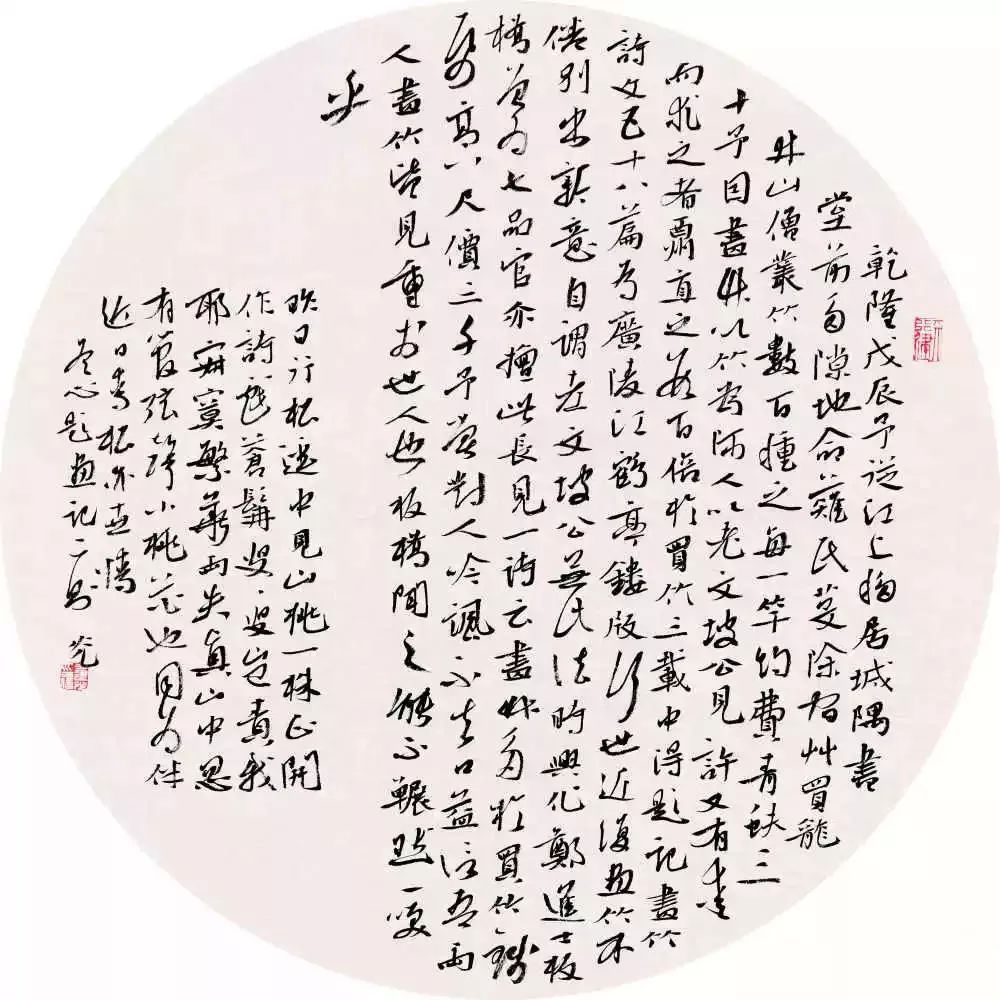 乾隆戊辰予從江上移居城隅書
堂前多隙地命薙氏芟除宿艸買龍
井山僧叢竹數百種之每一竿約費青蚨三
十予因畫此以竹為師人以老文坡公見許又有愛
而求之者酬直之數百倍於買竹三載中得題記畫竹
詩文五十八篇為廣陵江鶴亭鏤版行世近復畫竹不
倦別出新意自謂老文坡公無此法時興化鄭進士板
橋曾為七品官亦擅此長見一詩云畫竹多於買竹錢
紙高八尺價三千予嘗對人吟諷不去口益信吾兩
人畫竹皆見重於世人也板橋聞之能不囅然一笑
乎
昨日行松邊中見山桃一株正開
作詩謔蒼髯叟叟豈責我
耶寂寞繁華兩失真山中忽
有管弦箏小桃花也因為伴
近日喬松亦世情
冬心題畫記二則